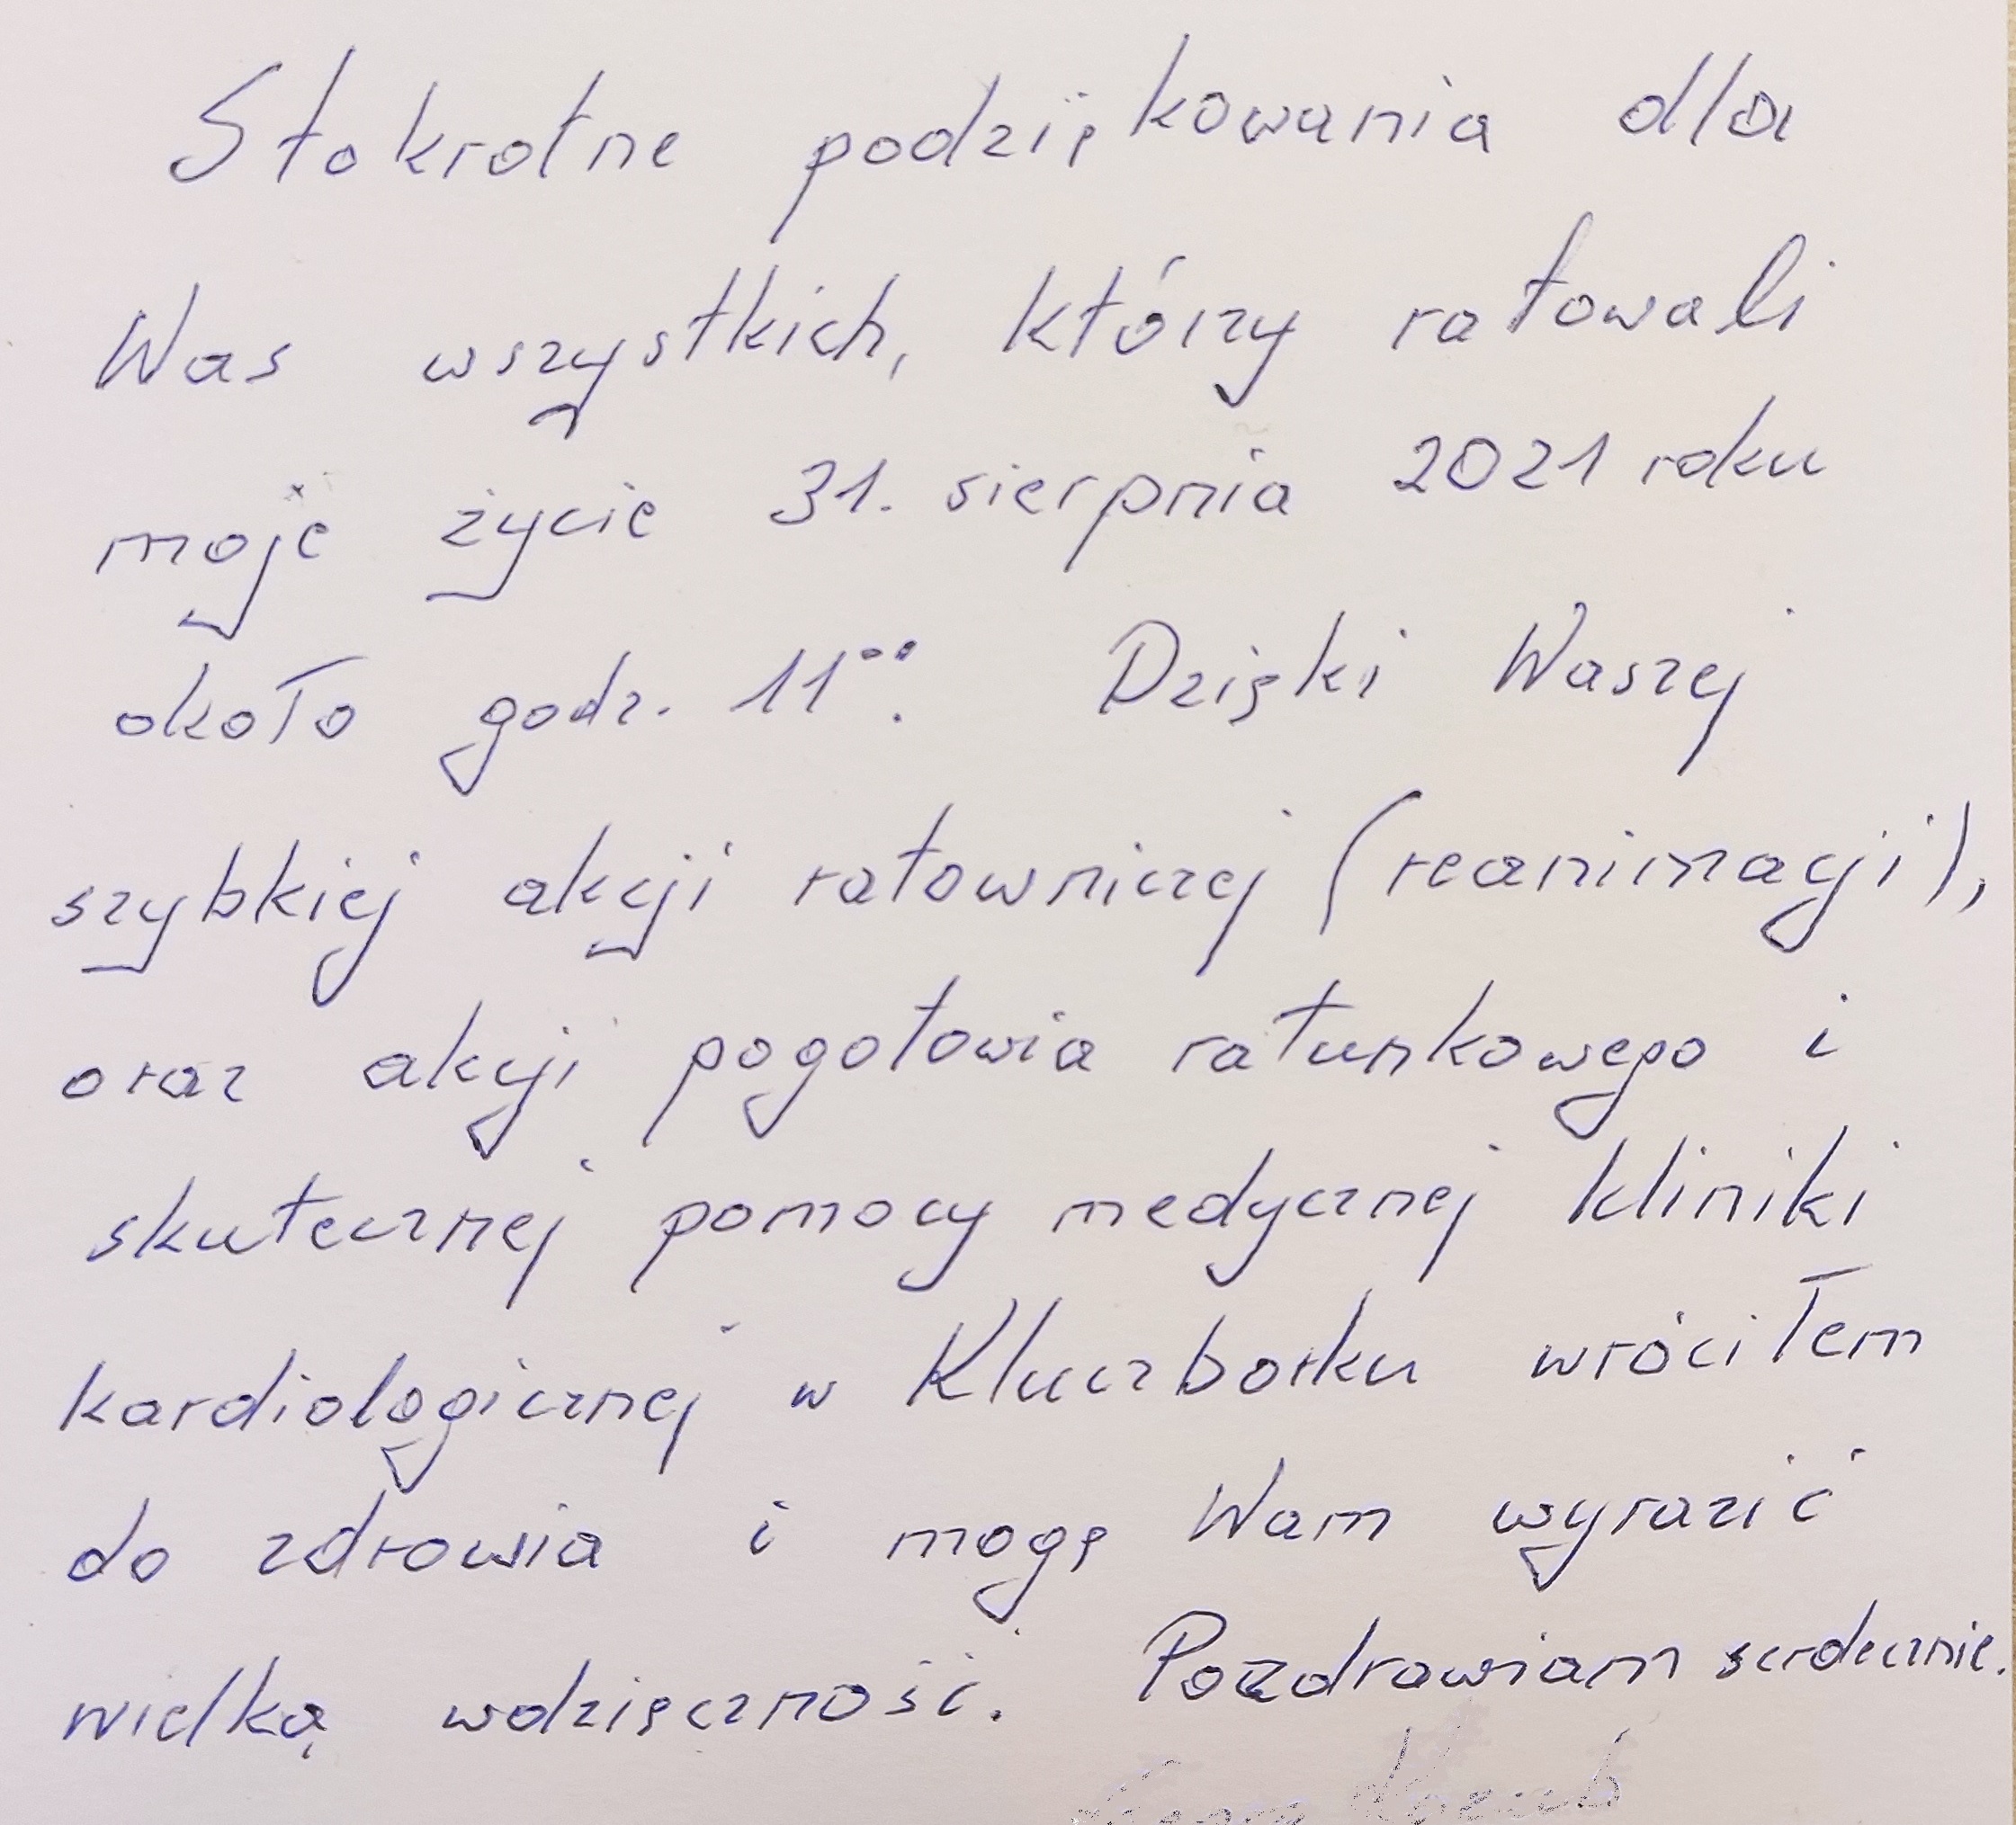 Stokrotne podziękowania dla
Was wszystkich, którzy ratowali
moje życie 31. sierpnia 2021 roku
około godz. 11⁰⁰. Dzięki Waszej
szybkiej akcji ratowniczej (reanimacji),
oraz akcji pogotowia ratunkowego i
skutecznej pomocy medycznej kliniki
kardiologicznej w Kluczborku wróciłem
do zdrowia i mogę Wam wyrazić
wielką wdzięczność. Pozdrawiam serdecznie.